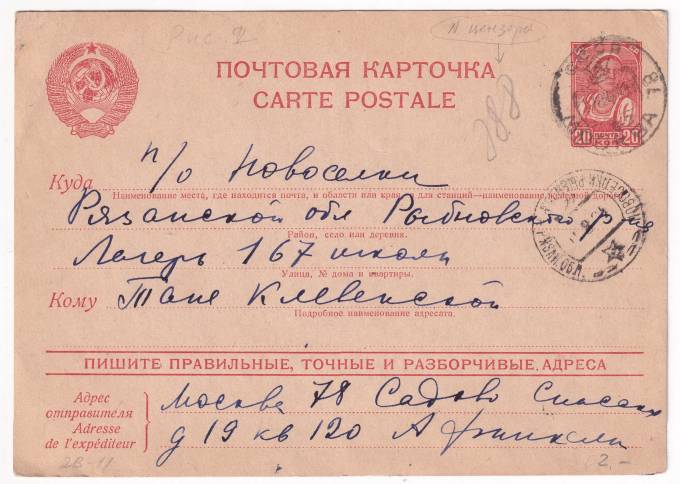 Рис. 2
№ цензора
ПОЧТОВАЯ КАРТОЧКА
CARTE POSTALE
288
20 ПОЧТА КОП. 20
п/о Новоселки
Куда
Наименование места, где находится почта, и области или края, а для станций—наименование железной дороги
Рязанской обл Рыбновского р-на
Район, село или деревня.
Лагерь 167 школы
Улица, № дома и квартиры.
Кому Тане Клевенской
Подробное наименование адресата.
ПИШИТЕ ПРАВИЛЬНЫЕ, ТОЧНЫЕ И РАЗБОРЧИВЫЕ АДРЕСА
Адрес отправителя
Adresse de l'expéditeur
Москва 78 Садово Спасская
д 19 кв 120 А
2В-11
2.-